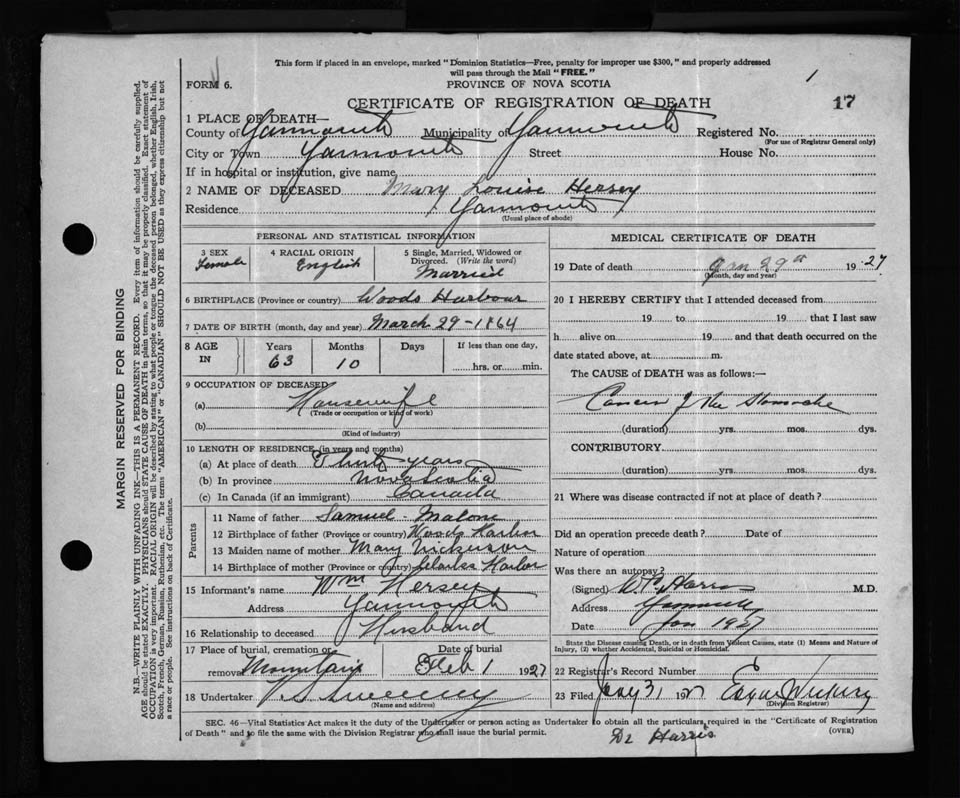 This form if placed in an envelope, marked "Dominion Statistics—Free, penalty for improper use $300," and properly addressed
will pass through the Mail "FREE."
FORM 6.
PROVINCE OF NOVA SCOTIA
1
CERTIFICATE OF REGISTRATION OF DEATH
17
1 PLACE OF DEATH—
County of Yarmouth Municipality of Yarmouth Registered No.
(For use of Registrar General only)
City or Town Yarmouth Street House No.
If in hospital or institution, give name
2 NAME OF DECEASED Mary Louise Hersey
Residence Yarmouth
(Usual place of abode)
PERSONAL AND STATISTICAL INFORMATION
3 SEX 4 RACIAL ORIGIN 5 Single, Married, Widowed or
Divorced. (Write the word)
Female English Married
6 BIRTHPLACE (Province or country) Woods Harbour
7 DATE OF BIRTH (month, day and year) March 29-1864
8 AGE IN Years Months Days If less than one day,
63 10 hrs. or min.
9 OCCUPATION OF DECEASED
(a) Housewife
(Trade or occupation or kind of work)
(b)
(Kind of industry)
10 LENGTH OF RESIDENCE (in years and months)
(a) At place of death years
(b) In province Nova Scotia
(c) In Canada (if an immigrant) Canada
Parents
11 Name of father Samuel Malone
12 Birthplace of father (Province or country) Woods Harbor
13 Maiden name of mother Mary Nickerson
14 Birthplace of mother (Province or country) Harbor
15 Informant's name Wm Hersey
Address Yarmouth
16 Relationship to deceased Husband
17 Place of burial, cremation or Date of burial
removal Mountain Feb 1 1927
18 Undertaker V S Sweeney
(Name and address)
MEDICAL CERTIFICATE OF DEATH
19 Date of death Jan 29 1927
(Month, day and year)
20 I HEREBY CERTIFY that I attended deceased from
19 to 19 that I last saw
h alive on 19 and that death occurred on the
date stated above, at m.
The CAUSE of DEATH was as follows:—
Cancer of the Stomache
(duration) yrs. mos. dys.
CONTRIBUTORY
(duration) yrs. mos. dys.
21 Where was disease contracted if not at place of death?
Did an operation precede death? Date of
Nature of operation
Was there an autopsy?
(Signed) Harris M.D.
Address Yarmouth
Date Jan 1927
State the Disease causing Death, or in death from Violent Causes, state (1) Means and Nature of
Injury, (2) whether Accidental, Suicidal or Homicidal.
22 Registrar's Record Number
23 Filed Jany 31 19
(Division Registrar)
SEC. 46—Vital Statistics Act makes it the duty of the Undertaker or person acting as Undertaker to obtain all the particulars required in the "Certificate of Registration
of Death" and to file the same with the Division Registrar who shall issue the burial permit. (OVER)
Dr Harris
MARGIN RESERVED FOR BINDING
N.B.—WRITE PLAINLY WITH UNFADING INK—THIS IS A PERMANENT RECORD. Every item of information should be carefully supplied.
AGE should be stated EXACTLY. PHYSICIANS should STATE CAUSE OF DEATH in plain terms, so that it may be properly classified. Exact statement of
OCCUPATION is very important. RACIAL ORIGIN will be described by stating to what people or tongue the deceased person belonged, whether English, Irish,
Scotch, French, German, Russian, Ruthenian, etc. The terms "AMERICAN" or "CANADIAN" SHOULD NOT BE USED as they express citizenship but not
a race or people. See instructions on back of Certificate.